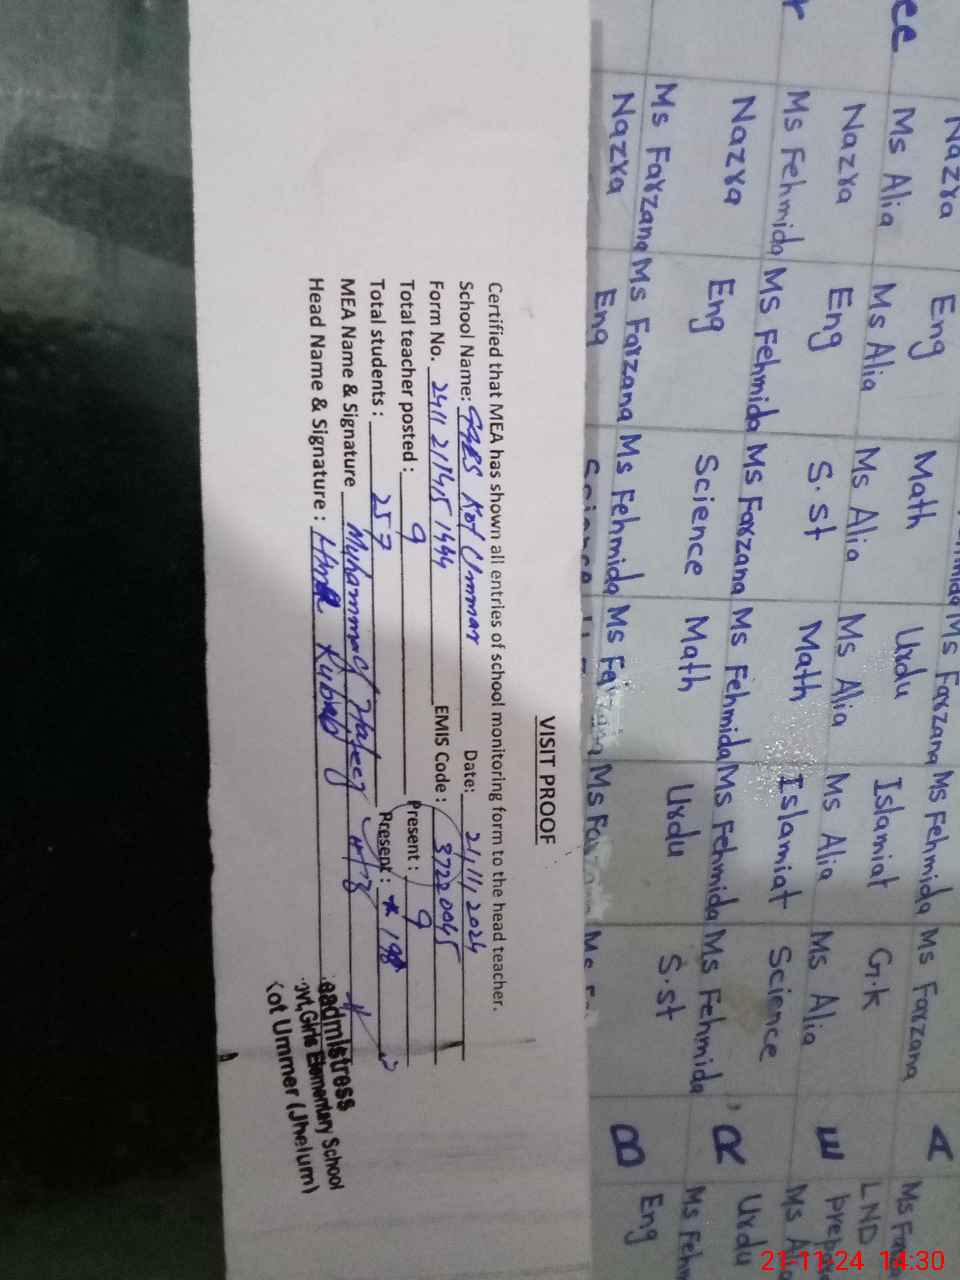 VISIT PROOF
Certified that MEA has shown all entries of school monitoring form to the head teacher.
School Name: GGES Kot Ummar Date: 21/11/2024
Form No. EMIS Code: 37220045
Total teacher posted: 9 Present: 9
Total students: 257 Present: 198
MEA Name & Signature Muhammad Hafeez
Head Name & Signature: Rubab
eadmistress
ovt, Girls Elementary School
Kot Ummer (Jhelum)
ee Nazra Eng Math Urdu Islamiat G.k A LND
Ms Alia Ms Alia Ms Alia Ms Alia Ms Alia Ms Alia
r Nazra Eng S.st Math Islamiat Science E
Ms Fehmida Ms Fehmida Ms Farzana Ms Fehmida Ms Fehmida Ms Fehmida
Nazra Eng Science Math Urdu S.st R Urdu
Ms Farzana Ms Farzana Ms Fehmida
Nazra Eng B Eng
Ms Farzana Ms Fehmida Ms Farzana
21-11-24 14:30